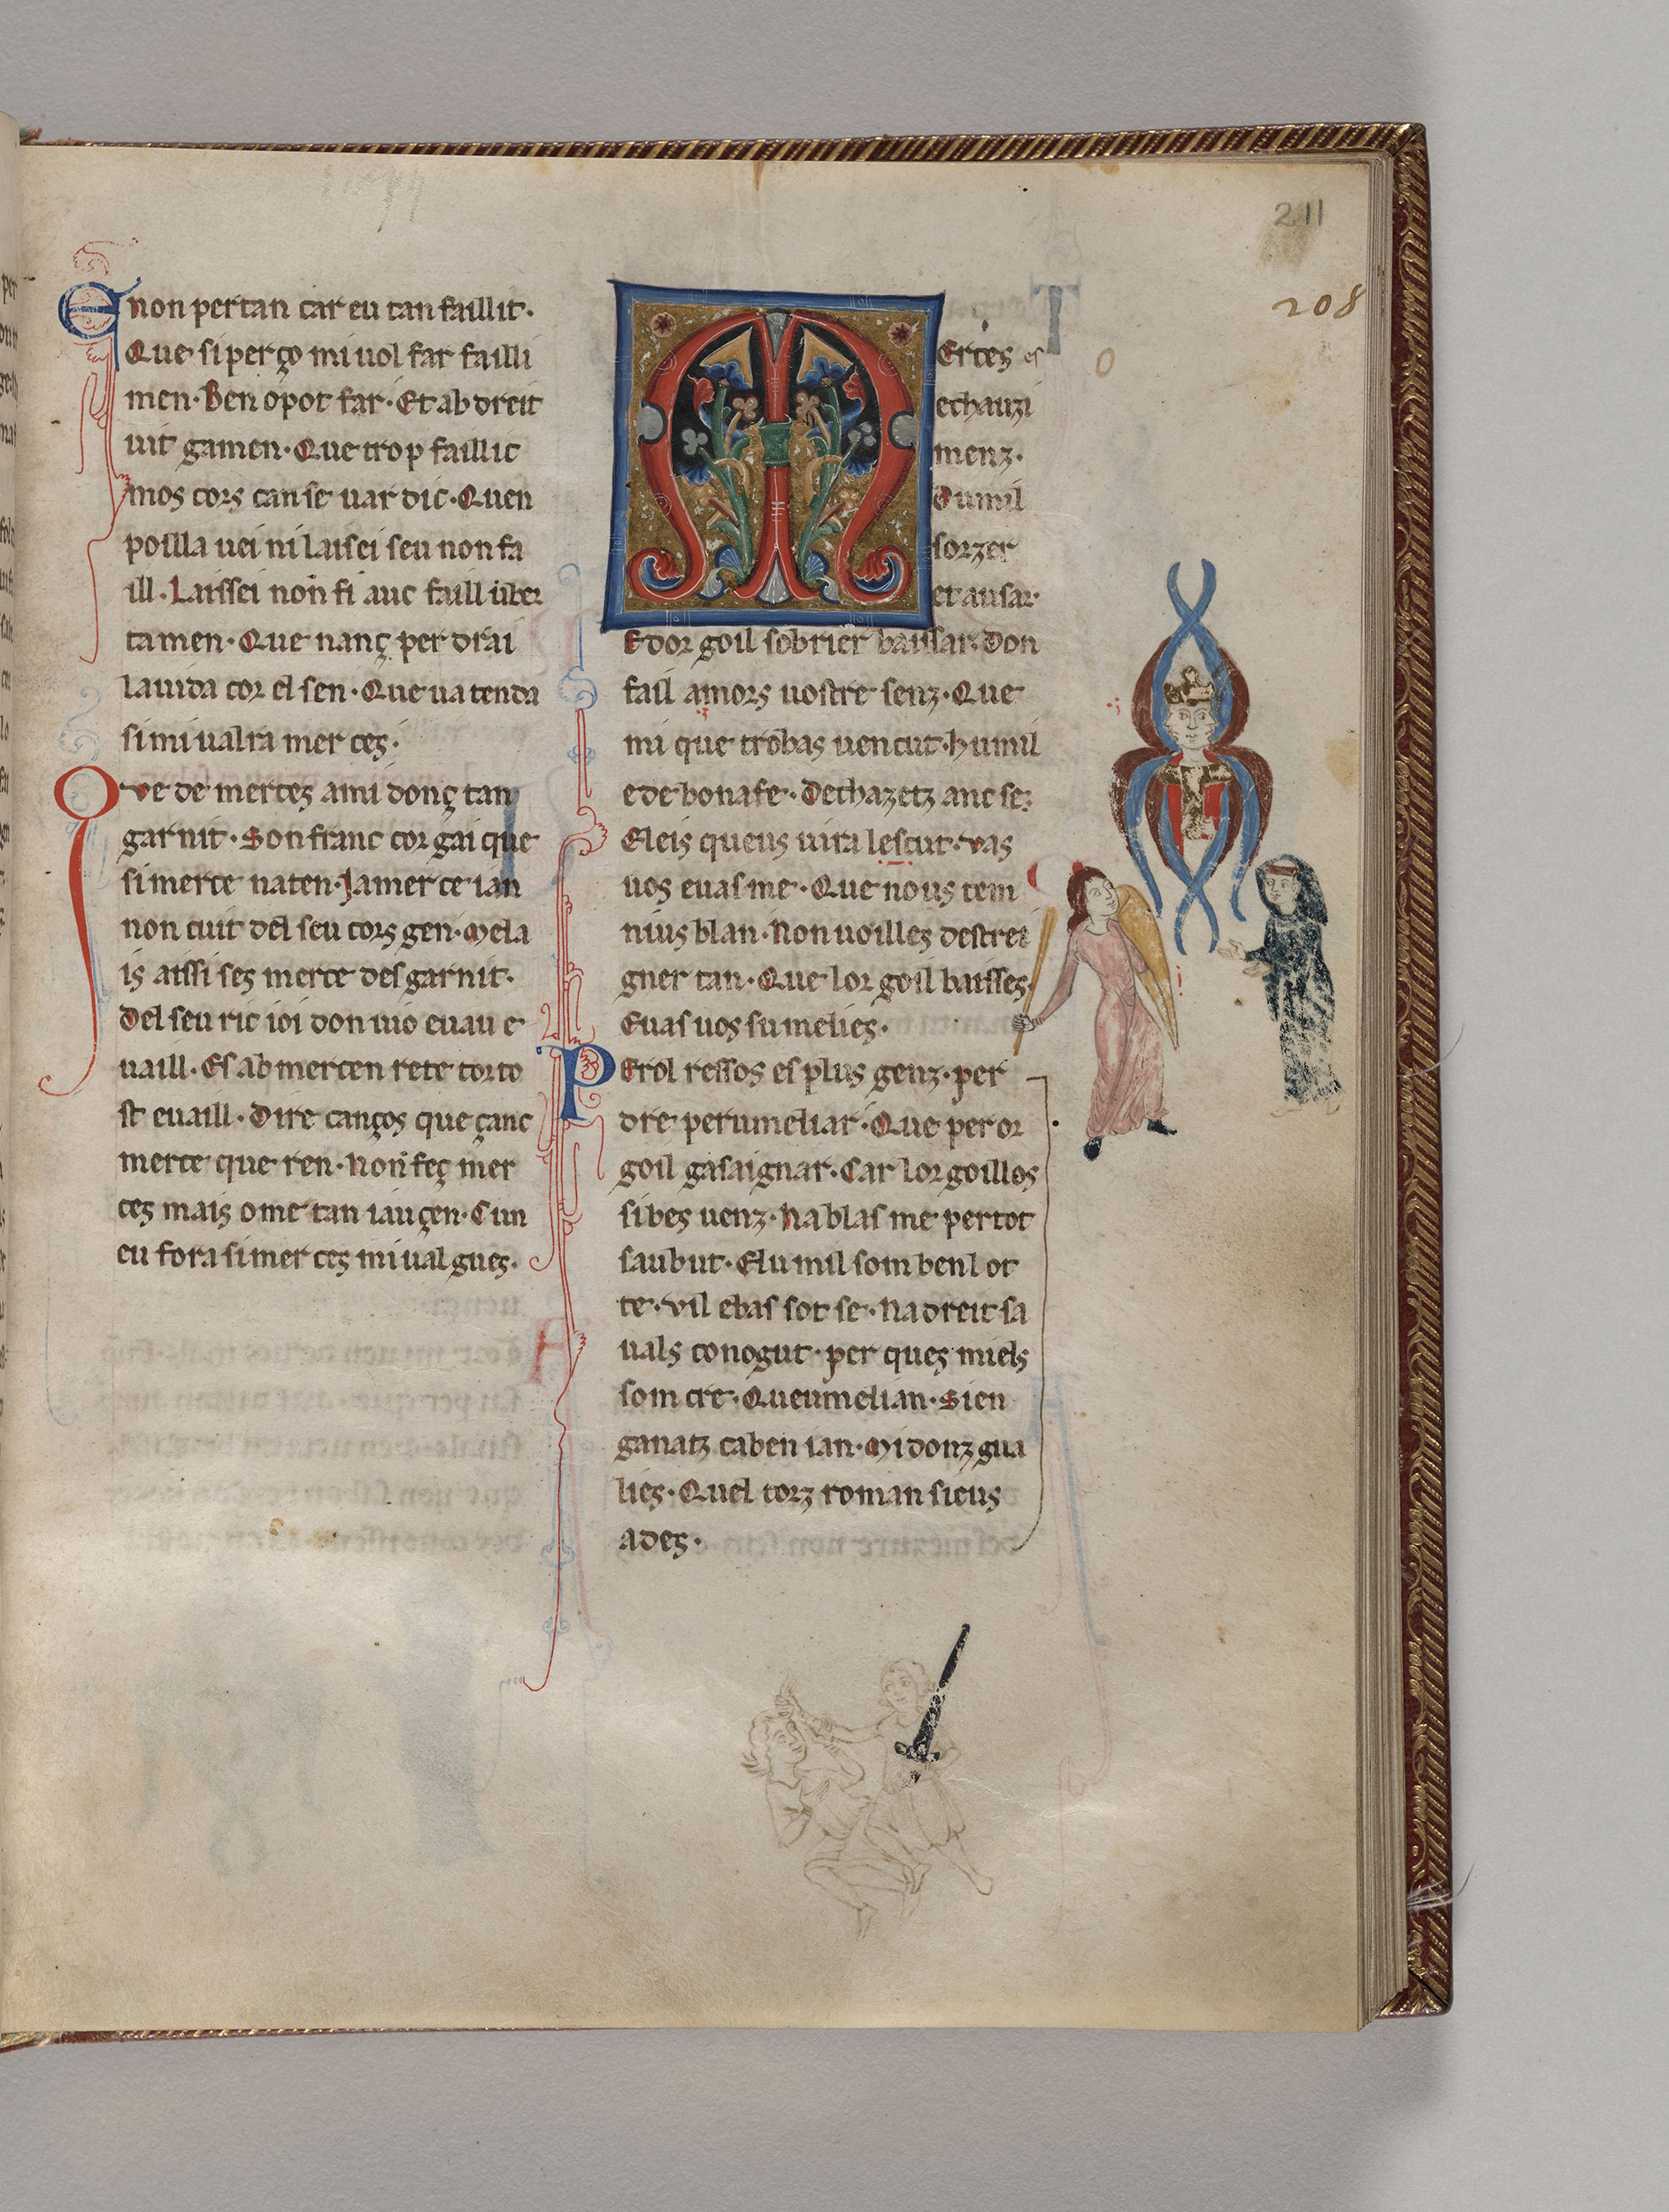 211
208
E non per tan car eu tan faillit·
Que si per ço mi uol far failli
men· Ben o pot far· Et ab dreit
uit gamen· Que trop faillic
mos cors can se uar dic· Quen
poilla uei ni laisei seu non fa
ill· Laissei non fi auc faill
tamen· Que nanç per drai
la uida cor el sen· Que ua tenda
si mi ualra mer ces·
Que de merces a mi donç tan
garnit· Son franc cor gai que
si merce naten· Ja mer ce ian
non cuit del seu cors gen· Mela
is aissi ses merce des garnit·
Del seu ric ioi don uio euau e
uaill· Es ab mercen rete torto
st euaill· Dire cançoș que çanc
merce que ren· Non feç mer
ces mais ome tan iauçen· Cun
eu fora si mer ces mi ual gues·
T
MErces es
echauzi
menz·
Dumil
sorzer
et ausar·
E dor goil sobrier baissar· Don
fail amors uostre senz· Que
mi que trobas uencut· humil
e de bona fe· Dechazetz anc se·
E leis queus uira lescut· Vas
uos euas me· Que nous tem
nius blan· Non uoilles destrei
gner tan· Que lor goil baisses·
Euas uos sumelies·
PErol ressos es plus genz· per
dre per umeliar· Que per or
goil gasaignar· Car lor goillos
si bes uenz· Na blas me per tot
saubut· Elumil som benl ot
te· Vil e bas sot se· Na dreit sa
uals conogut· per ques miels
som cre· Queumelian· Sien
ganatz caben ian· Mi donz gua
lies· Quel torz roman sieus
ades·